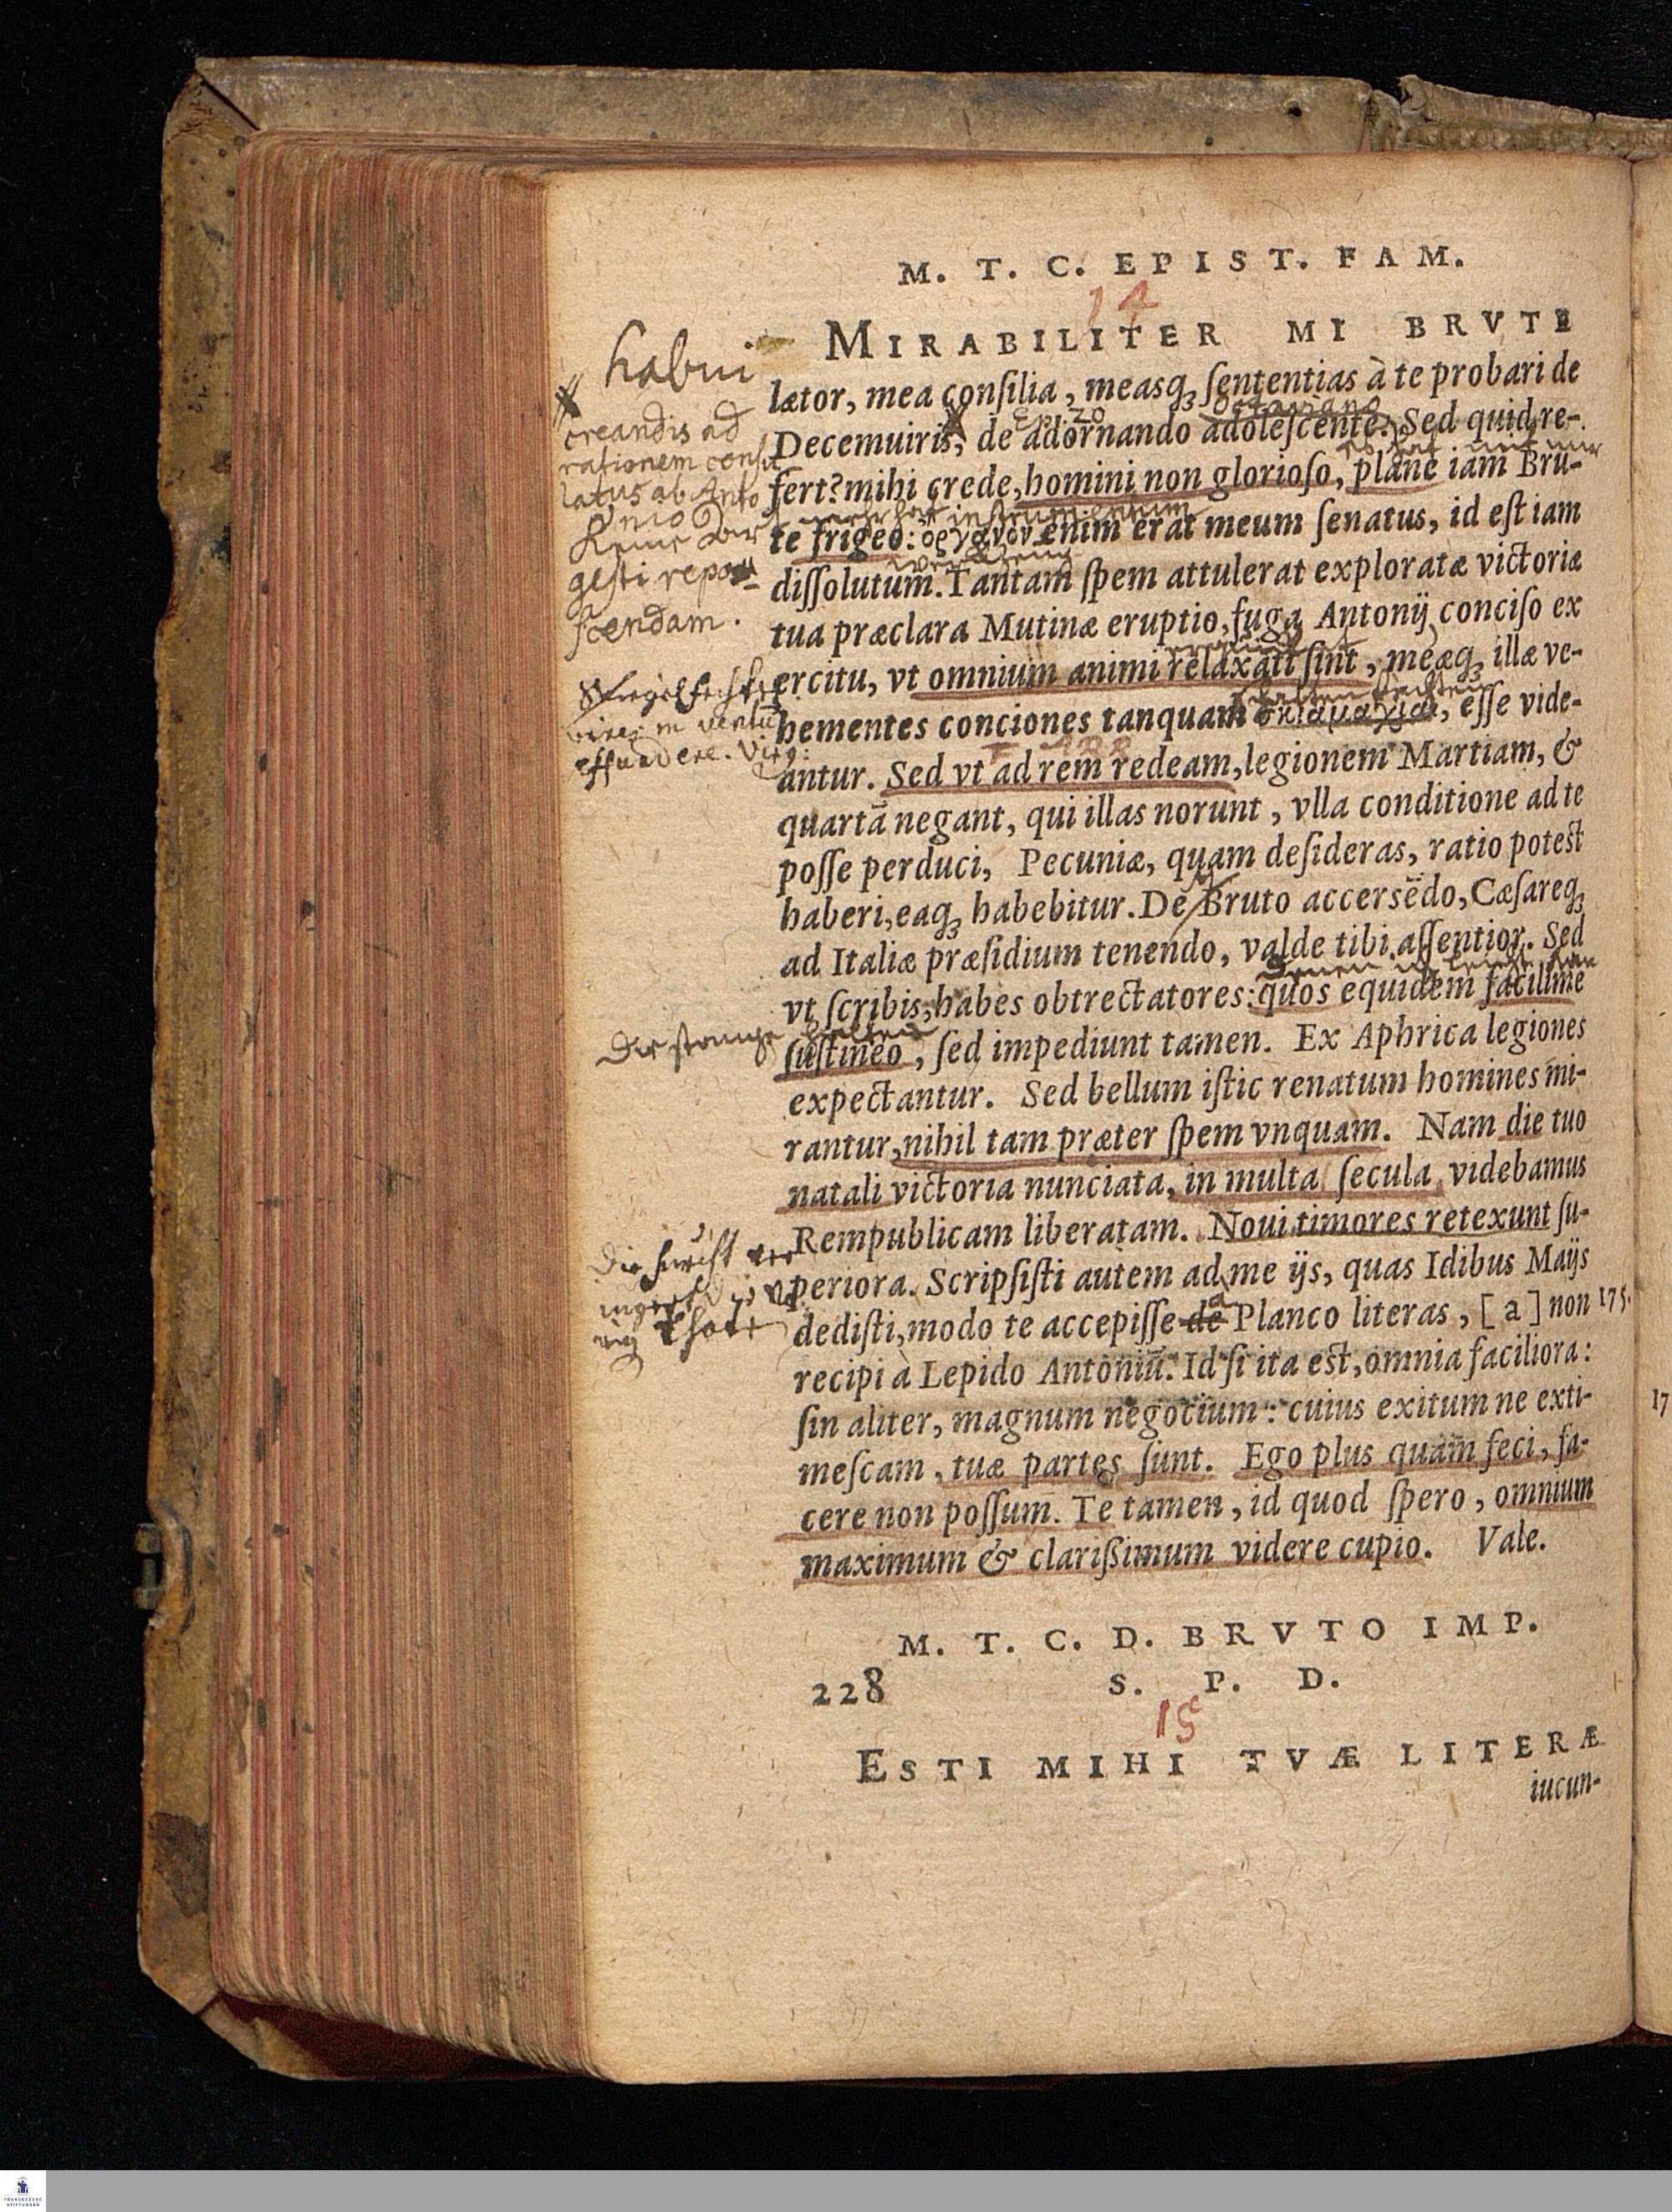 M. T. C. EPIST. FAM.
14
habui
MIRABILITER MI BRVTE
lætor, mea consilia, measq; sententias à te probari de
creandis ad
Ep. 20
Octaviano
Decemuiris, de adornando adolescente. Sed quid re-
rationem consu
latus ab Anto
nio
gesti repo
scendam.
fert? mihi crede, homini non glorioso, plane iam Bru-
instrumentum
te frigeo: ὄργανον enim erat meum senatus, id est iam
dissolutum. Tantam spem attulerat exploratæ victoriæ
tua præclara Mutinæ eruptio, fuga Antonij conciso ex
ercitu, vt omnium animi relaxati sint, meæq; illæ ve-
vires in ventū
effundere. Virg:
hementes conciones tanquam σκιαμαχίαι, esse vide-
antur. Sed vt ad rem redeam, legionem Martiam, &
quartā negant, qui illas norunt, vlla conditione ad te
posse perduci, Pecuniæ, quam desideras, ratio potest
haberi, eaq; habebitur. De Bruto accersēdo, Cæsareq;
ad Italiæ præsidium tenendo, valde tibi assentior. Sed
vt scribis, habes obtrectatores: quos equidem facillime
Die stange halten
sustineo, sed impediunt tamen. Ex Aphrica legiones
expectantur. Sed bellum istic renatum homines mi-
rantur, nihil tam præter spem vnquam. Nam die tuo
natali victoria nunciata, in multa secula videbamus
Rempublicam liberatam. Noui timores retexunt su-
periora. Scripsisti autem ad me ijs, quas Idibus Maijs
a
dedisti, modo te accepisse de Planco literas, [a] non 175.
recipi à Lepido Antoniū. Id si ita est, omnia faciliora:
sin aliter, magnum negotium: cuius exitum ne exti-
17
mescam, tuæ partes sunt. Ego plus quàm feci, fa-
cere non possum. Te tamen, id quod spero, omnium
maximum & clarißimum videre cupio. Vale.
M. T. C. D. BRVTO IMP.
228 S. P. D.
15
ESTI MIHI TVÆ LITERÆ
iucun-
FRANCKESCHE
STIFTUNGEN